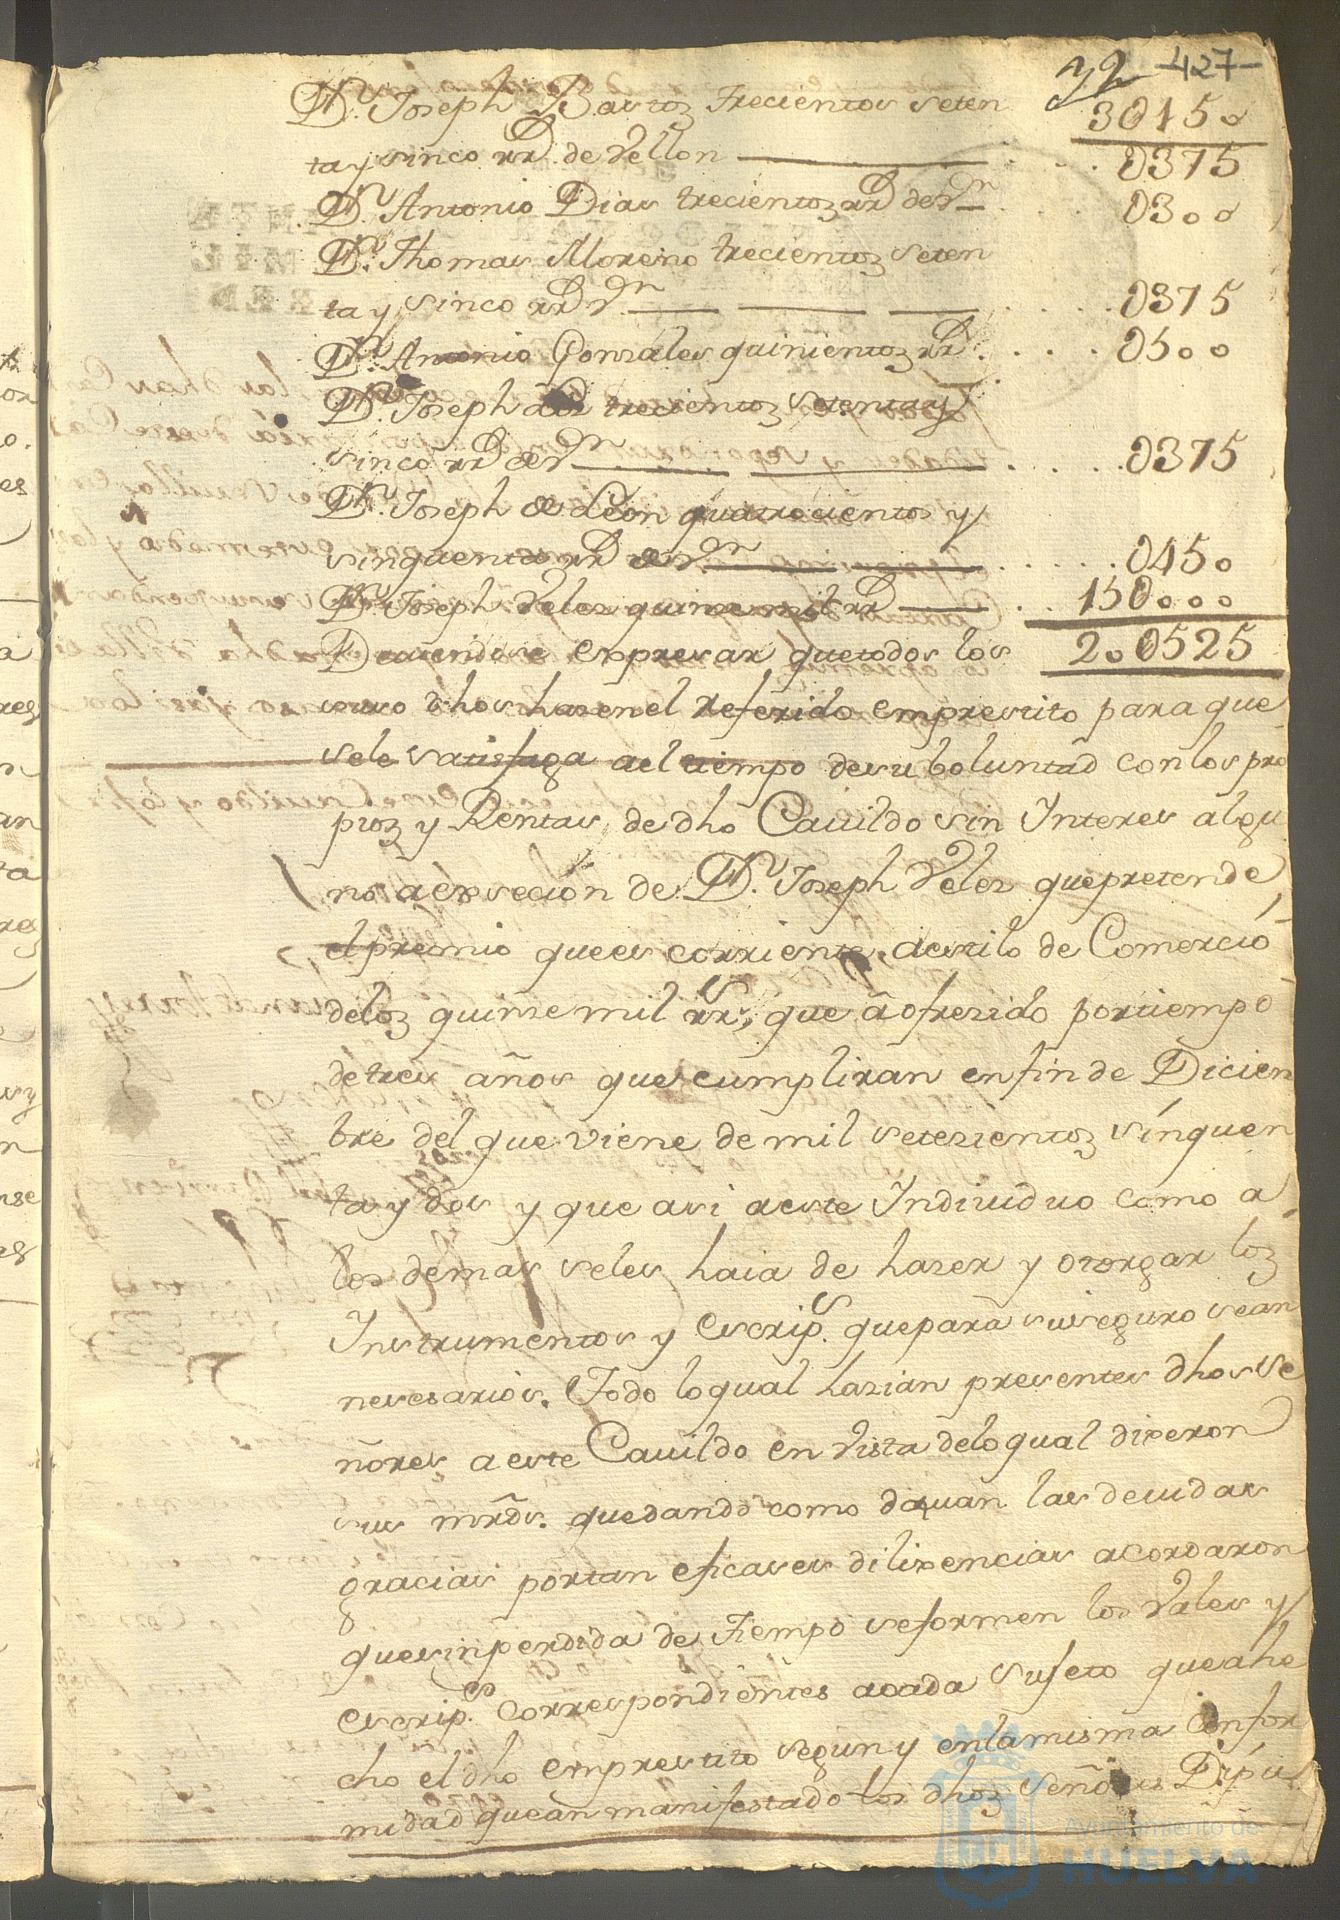 32 -427-
30150
Dn. Joseph Bartoz trecientos seten
ta y sinco rrs. de Vellon 0375
Dn. Antonio Dias trecientoz rrs de Vn 0300
Dn. Thomas Moreno trecientoz seten
ta y sinco rrs Vn 0375
Dn. Antonio Gonzales quinientoz rrs. 0500
Dn. Joseph trecientoz setenta y
sinco rrs de Vn 0375
Dn. Joseph de Leon quatrocientos y
sinquenta rrs de Vn 0450
Dn. Joseph Velez quinse mil rrs 150000
Deuiendose expresar que todos los 200525
suso dhos hasen el referido emprestito para que
se le satisfaga al tiempo de su boluntad con los pro
pioz y Rentas de dho Cauildo sin Interes algu
no a exsecion de Dn. Joseph Velez que pretende
el premio que es corriente a estilo de Comercio
de loz quinse mil rrs, que a ofresido por tiempo
de tres años que cumpliran en fin de Dicien
bre del que viene de mil setezientoz sínquen
ta y dos y que asi a este Indiuiduo como a
los demas se les haia de haser y otorgar loz
Instrumentos y escrips. que para su seguro sean
nesesarios. Todo lo qual hazian presentes dhos se
ñores a este Cauildo en vista de lo qual dixeron
sus mrds. quedando como dauan las deuidas
gracias por tan eficases dilixencias acordaron
que sin perdida de Tiempo se formen los Vales y
escrips. correspondientes a cada sujeto que a he
cho el dho emprestito segun y en la misma Confor
midad que an manifestado los dhoz Señores Dipu
Ayuntamiento de
HUELVA